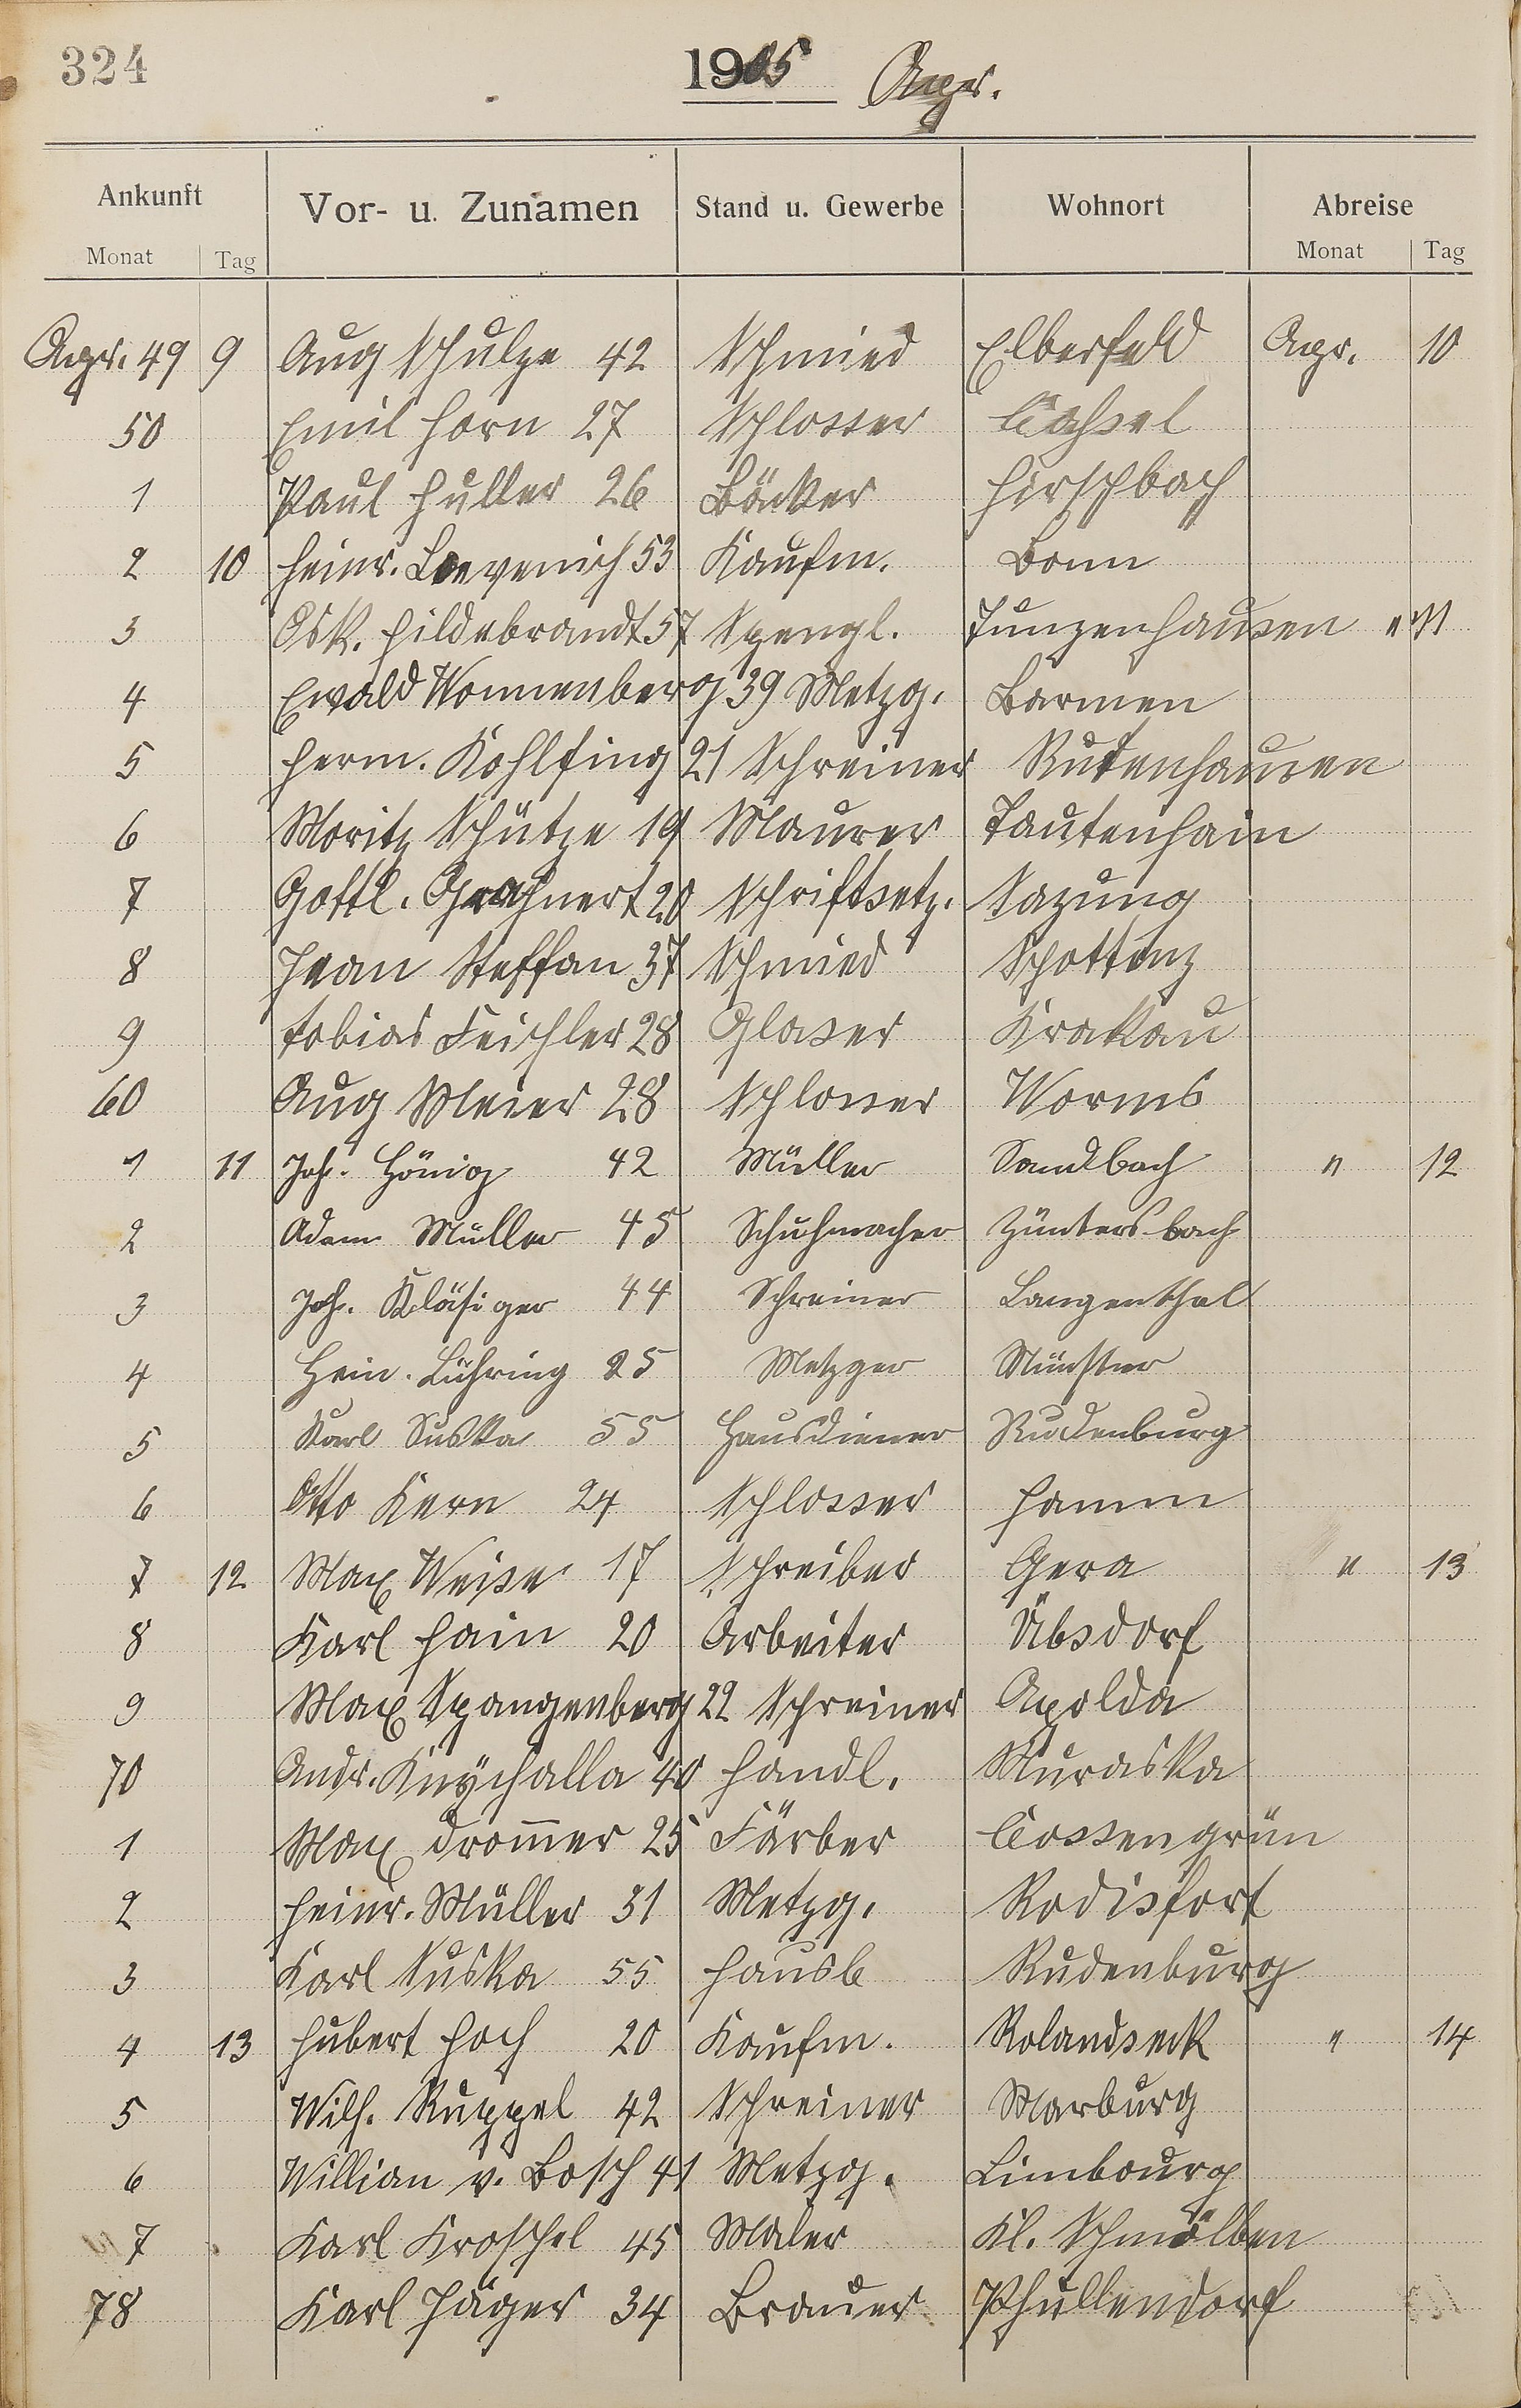 324
1905 Apr.
Ankunft Vor- u. Zunamen Stand u. Gewerbe Wohnort Abreise
Monat Tag Monat Tag
Apr. 49 9 Aug Schulze 42 Schmied Elberfeld Apr. 10
50 Emil Horn 27 Schlosser Cassel
1 Paul Huller 26 Bäcker Hirschbach
2 10 Heinr. Loevenich 53 Kaufm. Bonn
3 Osk. Hildebrandt 57 Spengl. Tunzenhausen " 11
4 Ewald Wonnenberg 39 Metzg. Barmen
5 Herm. Kohlfing 21 Schreiner Rutenhausen
6 Moritz Schütze 19 Maurer Tautenhain
7 Gottl. Grahnert 20 Schriftsetz. Sazung
8 Jean Steffan 37 Schmied Schottinz
9 Tobias Feichler 28 Glaser Krakau
60 Aug Meier 28 Schlosser Worms
1 11 Joh. Hönig 42 Müller Sandbach " 12
2 Adam Müller 45 Schuhmacher Züntersbach
3 Joh. Kläsiger 44 Schreiner Langenthal
4 Hein. Lühring 25 Metzger Münster
5 Karl Suska 55 Hausdiener Rudenburg
6 Otto Kern 24 Schlosser Hamm
7 12 Max Weise 17 Schreiber Gera " 13
8 Karl Hain 20 Arbeiter Übsdorf
9 Max Spangenberg 22 Schreiner Apolda
70 Andr. Knychalla 40 Handl. Muraska
1 Max Drom̄er 25 Färber Cossengrün
2 Heinr. Müller 31 Metzg. Rodisfort
3 Karl Suska 55 Hausb Rudenburg
4 13 Hubert Hoch 20 Kaufm. Rolandseck " 14
5 Wilh. Ruppel 42 Schreiner Marburg
6 Willian v. Bosch 41 Metzg. Limbourg
7 Karl Kroschel 45 Maler Kl. Schmölben
78 Karl Jäger 34 Brauer Phullendorf